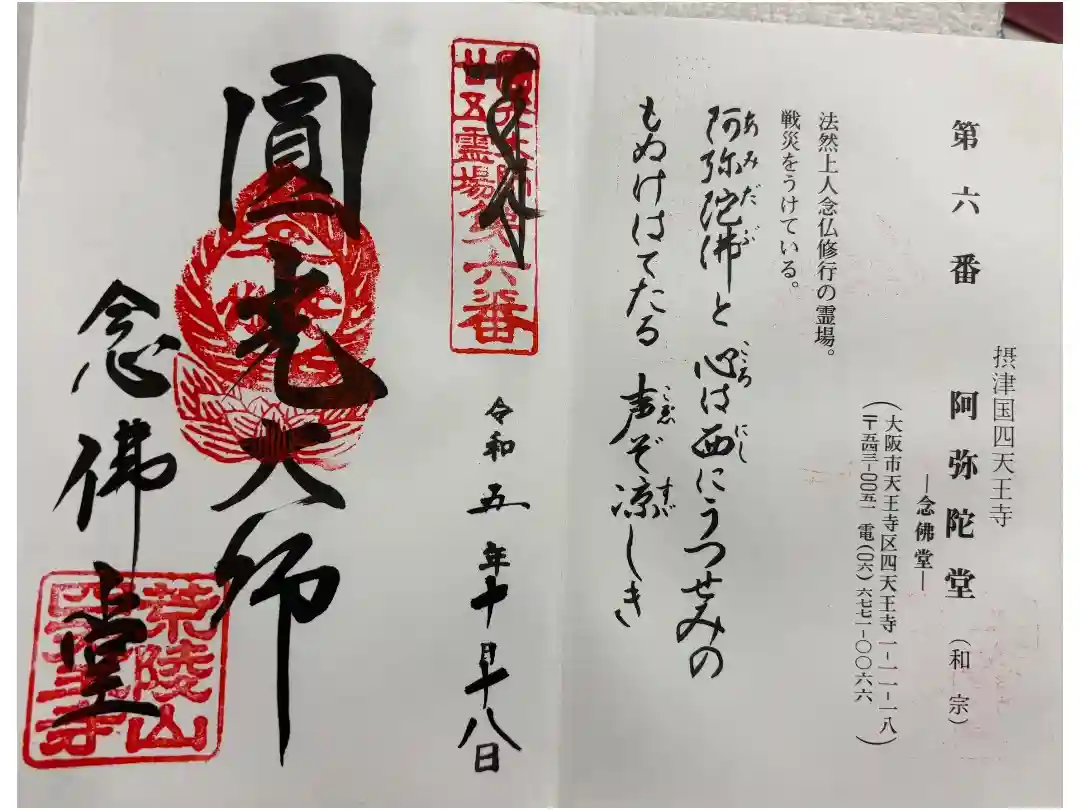 第六番
摂津国四天王寺
阿弥陀堂(和宗)
―念佛堂―
(大阪市天王寺区四天王寺一-一一-一八
〒五四三-〇〇五一 電(〇六)六七七一-〇〇六六)
法然上人念仏修行の霊場。
戦災をうけている。
阿弥陀佛と 心は西にうつせみの
あみだぶ こころ にし
もぬけはてたる 声ぞ涼しき
こゑ すず
奉拝
廿五霊場第六番
令和五年十月十八日
圓光大師
念佛堂
荒陵山
四天王寺